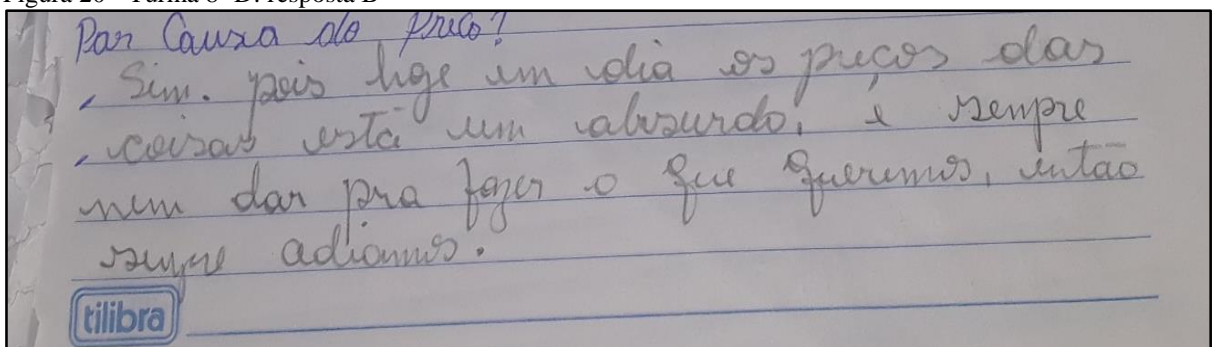 Figura 20 - Turma 8º D: resposta B
Par Causa do preço?
Sim. pois hoge em dia os preços das
coisas está um absurdo, e sempre
nem dar pra fazer o que queremos, então
sempre adiamos.
tilibra